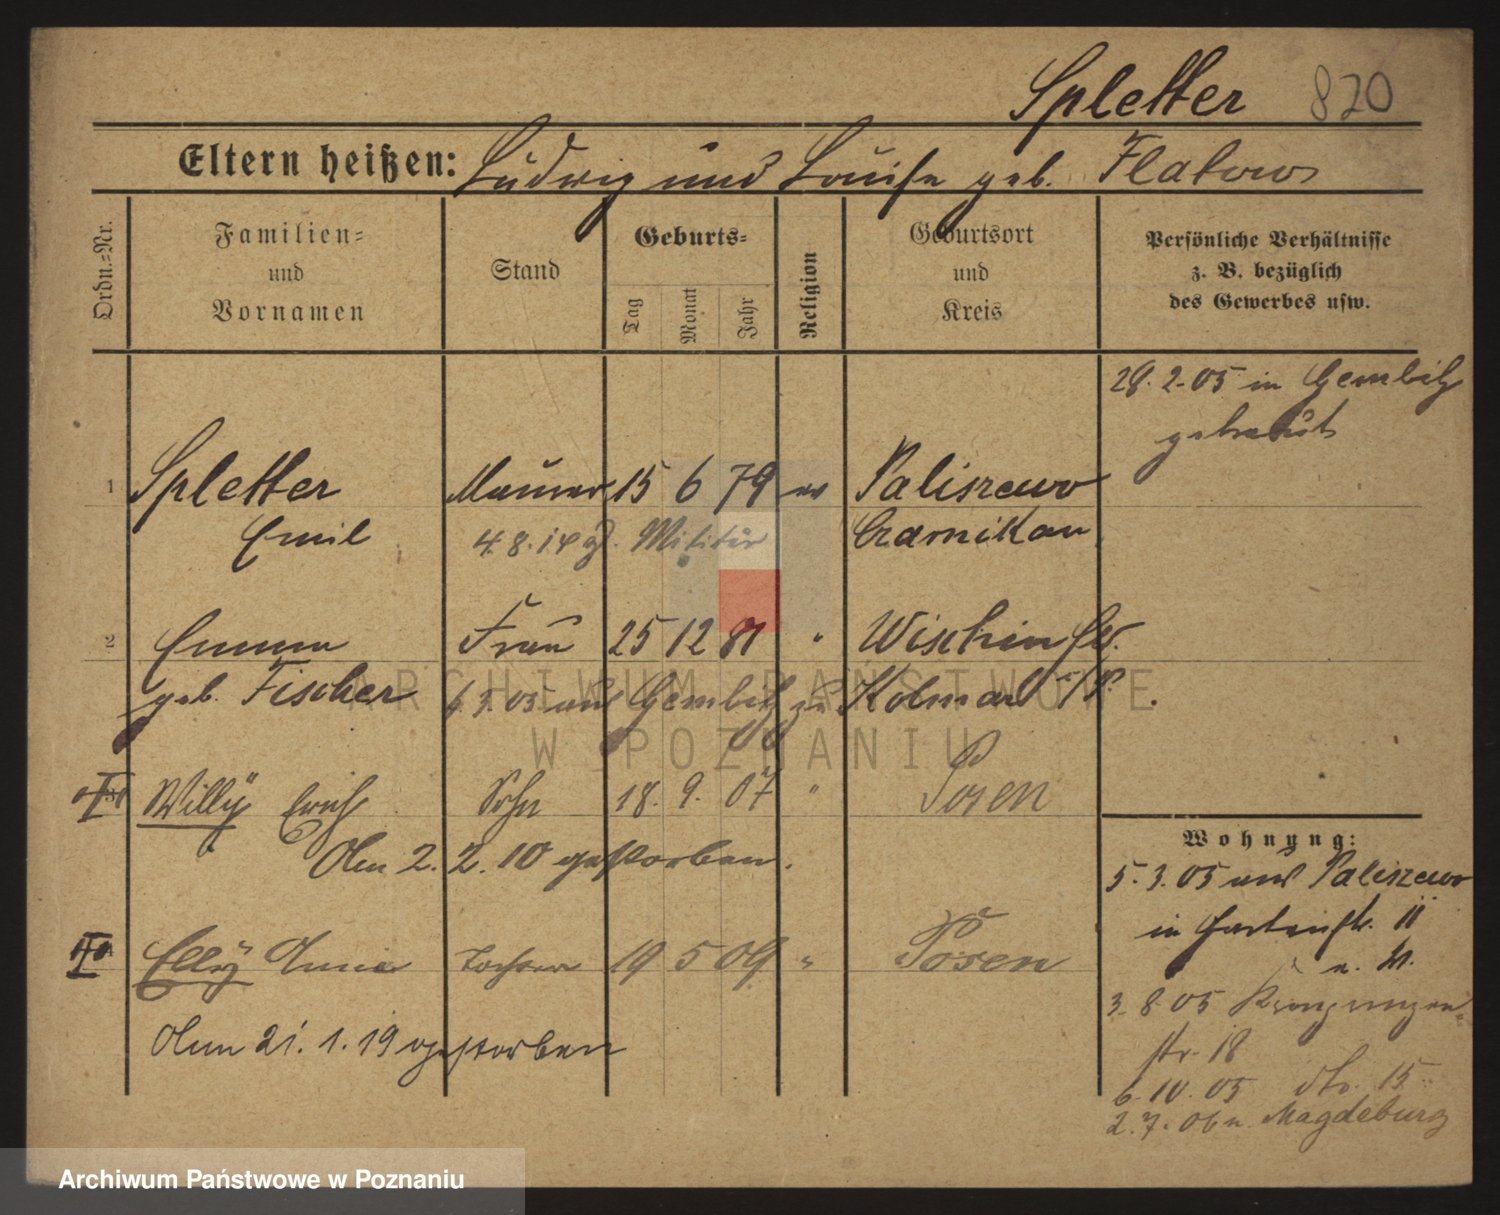 Spletter 820
Eltern heißen: Ludwig und Louise geb. Flatow
Ordn.=Nr.
Familien=
und
Vornamen
Stand
Geburts=
Tag
Monat
Jahr
Religion
Geburtsort
und
Kreis
Persönliche Verhältnisse
z. B. bezüglich
des Gewerbes usw.
28. 2. 05 in Gembitz
getraut
1 Spletter Maurer 15 6 79 ev Paliszewo
Emil 4. 8. 14 z. Militär Czarnikau
2 Emma Frau 25 12 81 " Wischin
geb. Fischer 6. 3. 05 aus Gembitz zu Kolmar i/P.
Willÿ Erich Sohn 18. 9. 07 " Posen
Am 2. 2. 10 gestorben.
Ellÿ Anna Tochter 19 5 09 " Posen
Am 21. 1. 19 gestorben
Wohnung:
5. 3. 05 aus Paliszewo
in Gartenstr. 11
n.
3. 8 05
str. 18
6. 10. 05 dto. 15
2. 7. 06 n. Magdeburg
ARCHIWUM PAŃSTWOWE
W POZNANIU
Archiwum Państwowe w Poznaniu